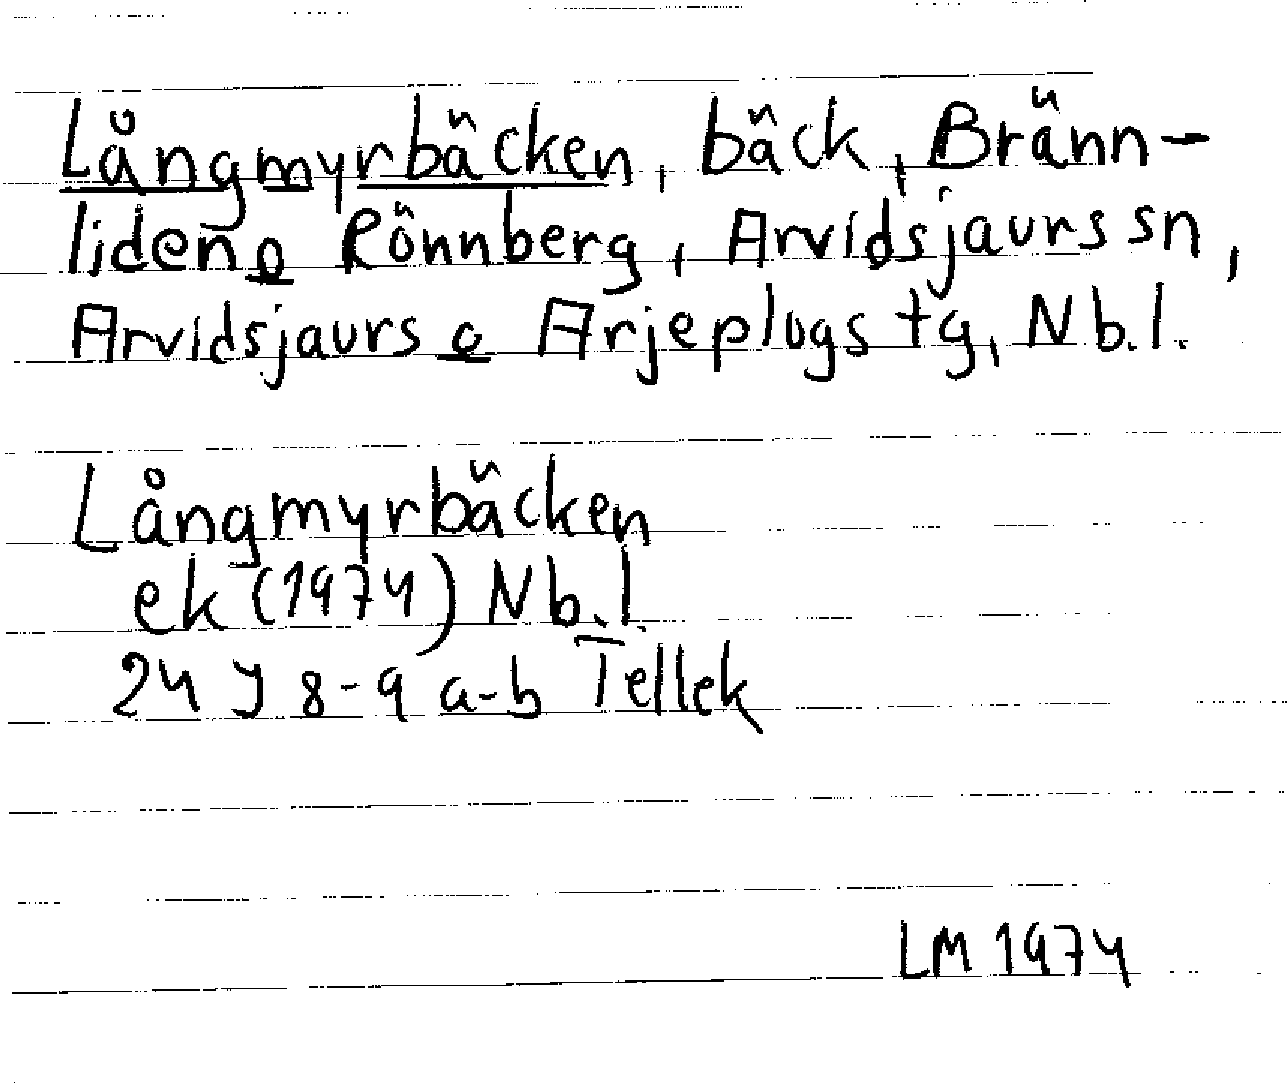 Långmyrbäcken, bäck, Bränn-
liden o Rönnberg, Arvidsjaurs sn,
Arvidsjaurs o Arjeplogs tg, Nb.l.
Långmyrbäcken
ek (1974) Nb.l.
24 J 8-9 a-b Tellek
LM 1974